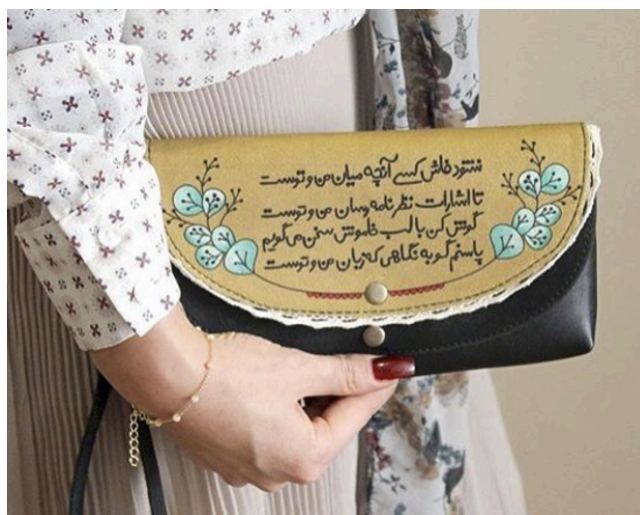 نشنود فاش کسی آنچه میان من و توست
تا اشارات نظر نامه رسان من و توست
گوش کن با لب خاموش سخن می گویم
پاسخم گو به نگاهی که زبان من و توست